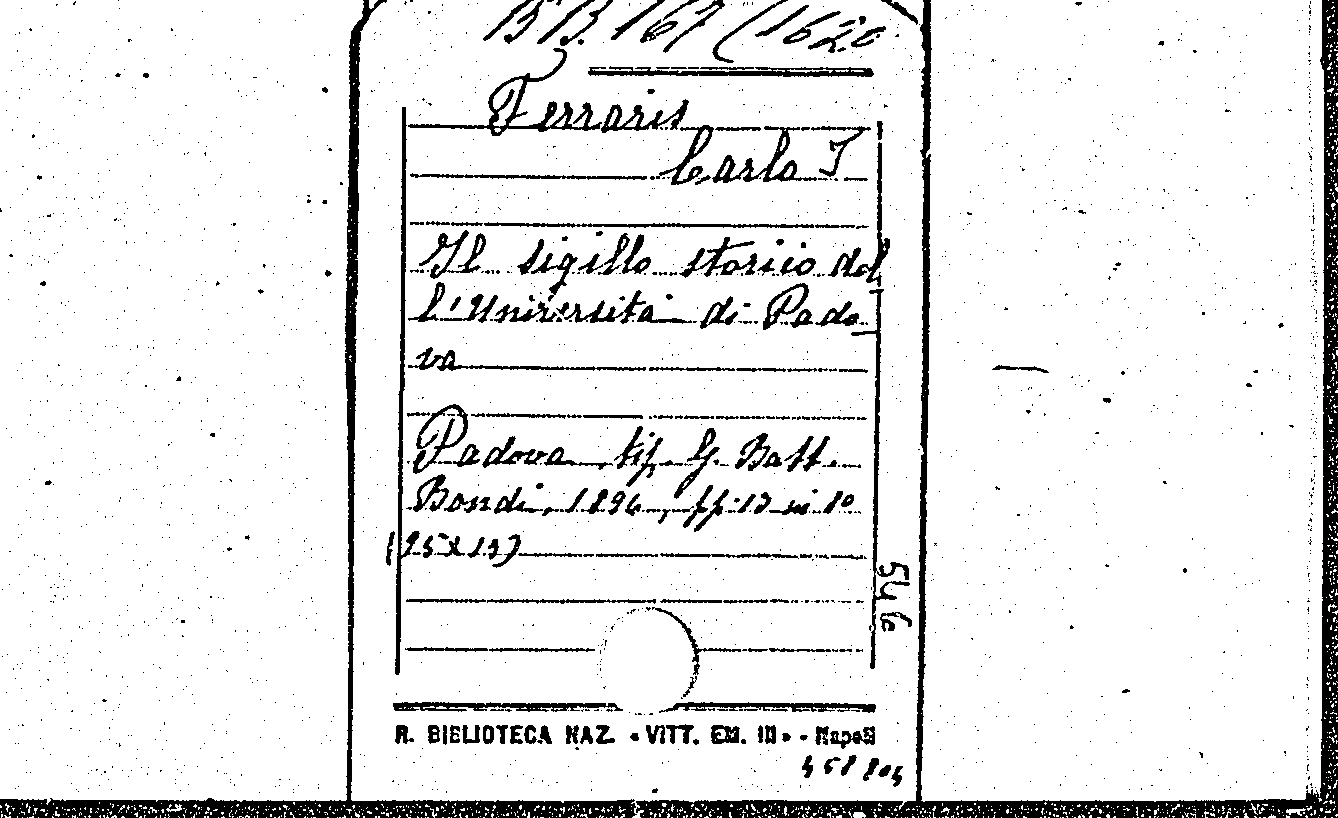 B.B. 167 (1620
Ferraris
Carlo F
Il sigillo storico del
l'Università di Pado
va
Padova tip. G. Batt.
Bondi, 1896, pp. 17 in 8º
(25x17)
546
R. BIBLIOTECA NAZ. «VITT. EM. III» - Napoli
458804